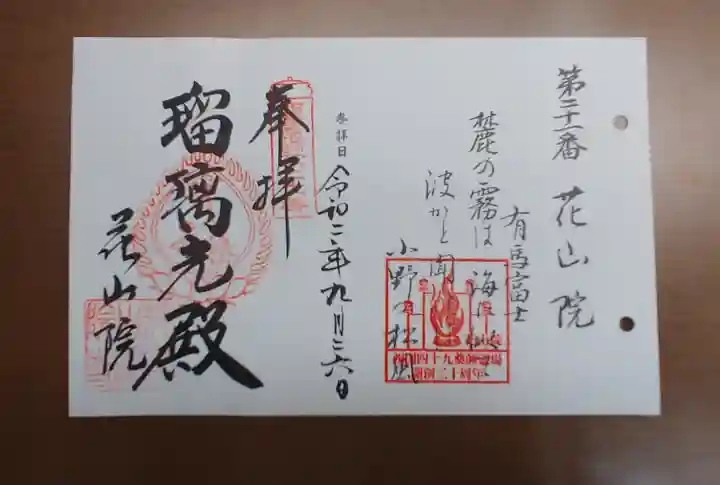 第二十一番 花山院
有馬富士
麓の霧は 海に似て
波かと聞
小野の松風
西国四十九薬師霊場
開創二十周年
参拝日 令和二年九月二六日
奉拝
瑠璃光殿
花山院